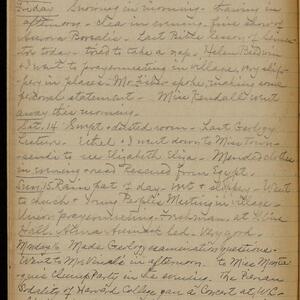 Friday Snowed in morning - thawing in
afternoon - clear in evening, fine show of
Aurora Borealis - Last Bible lesson of
today - tried to take a nap. Helen Baldwin
& I went to prayermeeting in village, very slip-
pery in places - Mr. spoke, making some
personal statement - Miss Kendall went
away this morning.
Sat. 14 Swept & dusted room - Last Geology
lecture. Ethel & I went down to Miss
to see Elizabeth - Mended clothes
in evening & read Rescued from Egypt.
Sun. 15 Rain part of day - wet & slippery - Went
to church & Young People's Meeting in village -
Union prayermeeting
Hall. led. Very good.
Monday 16 Made Geology examination questions.
Went to in afternoon. to Miss
Party in the studio. The Pierian
Sodality of Harvard College gave a Concert at W.C.